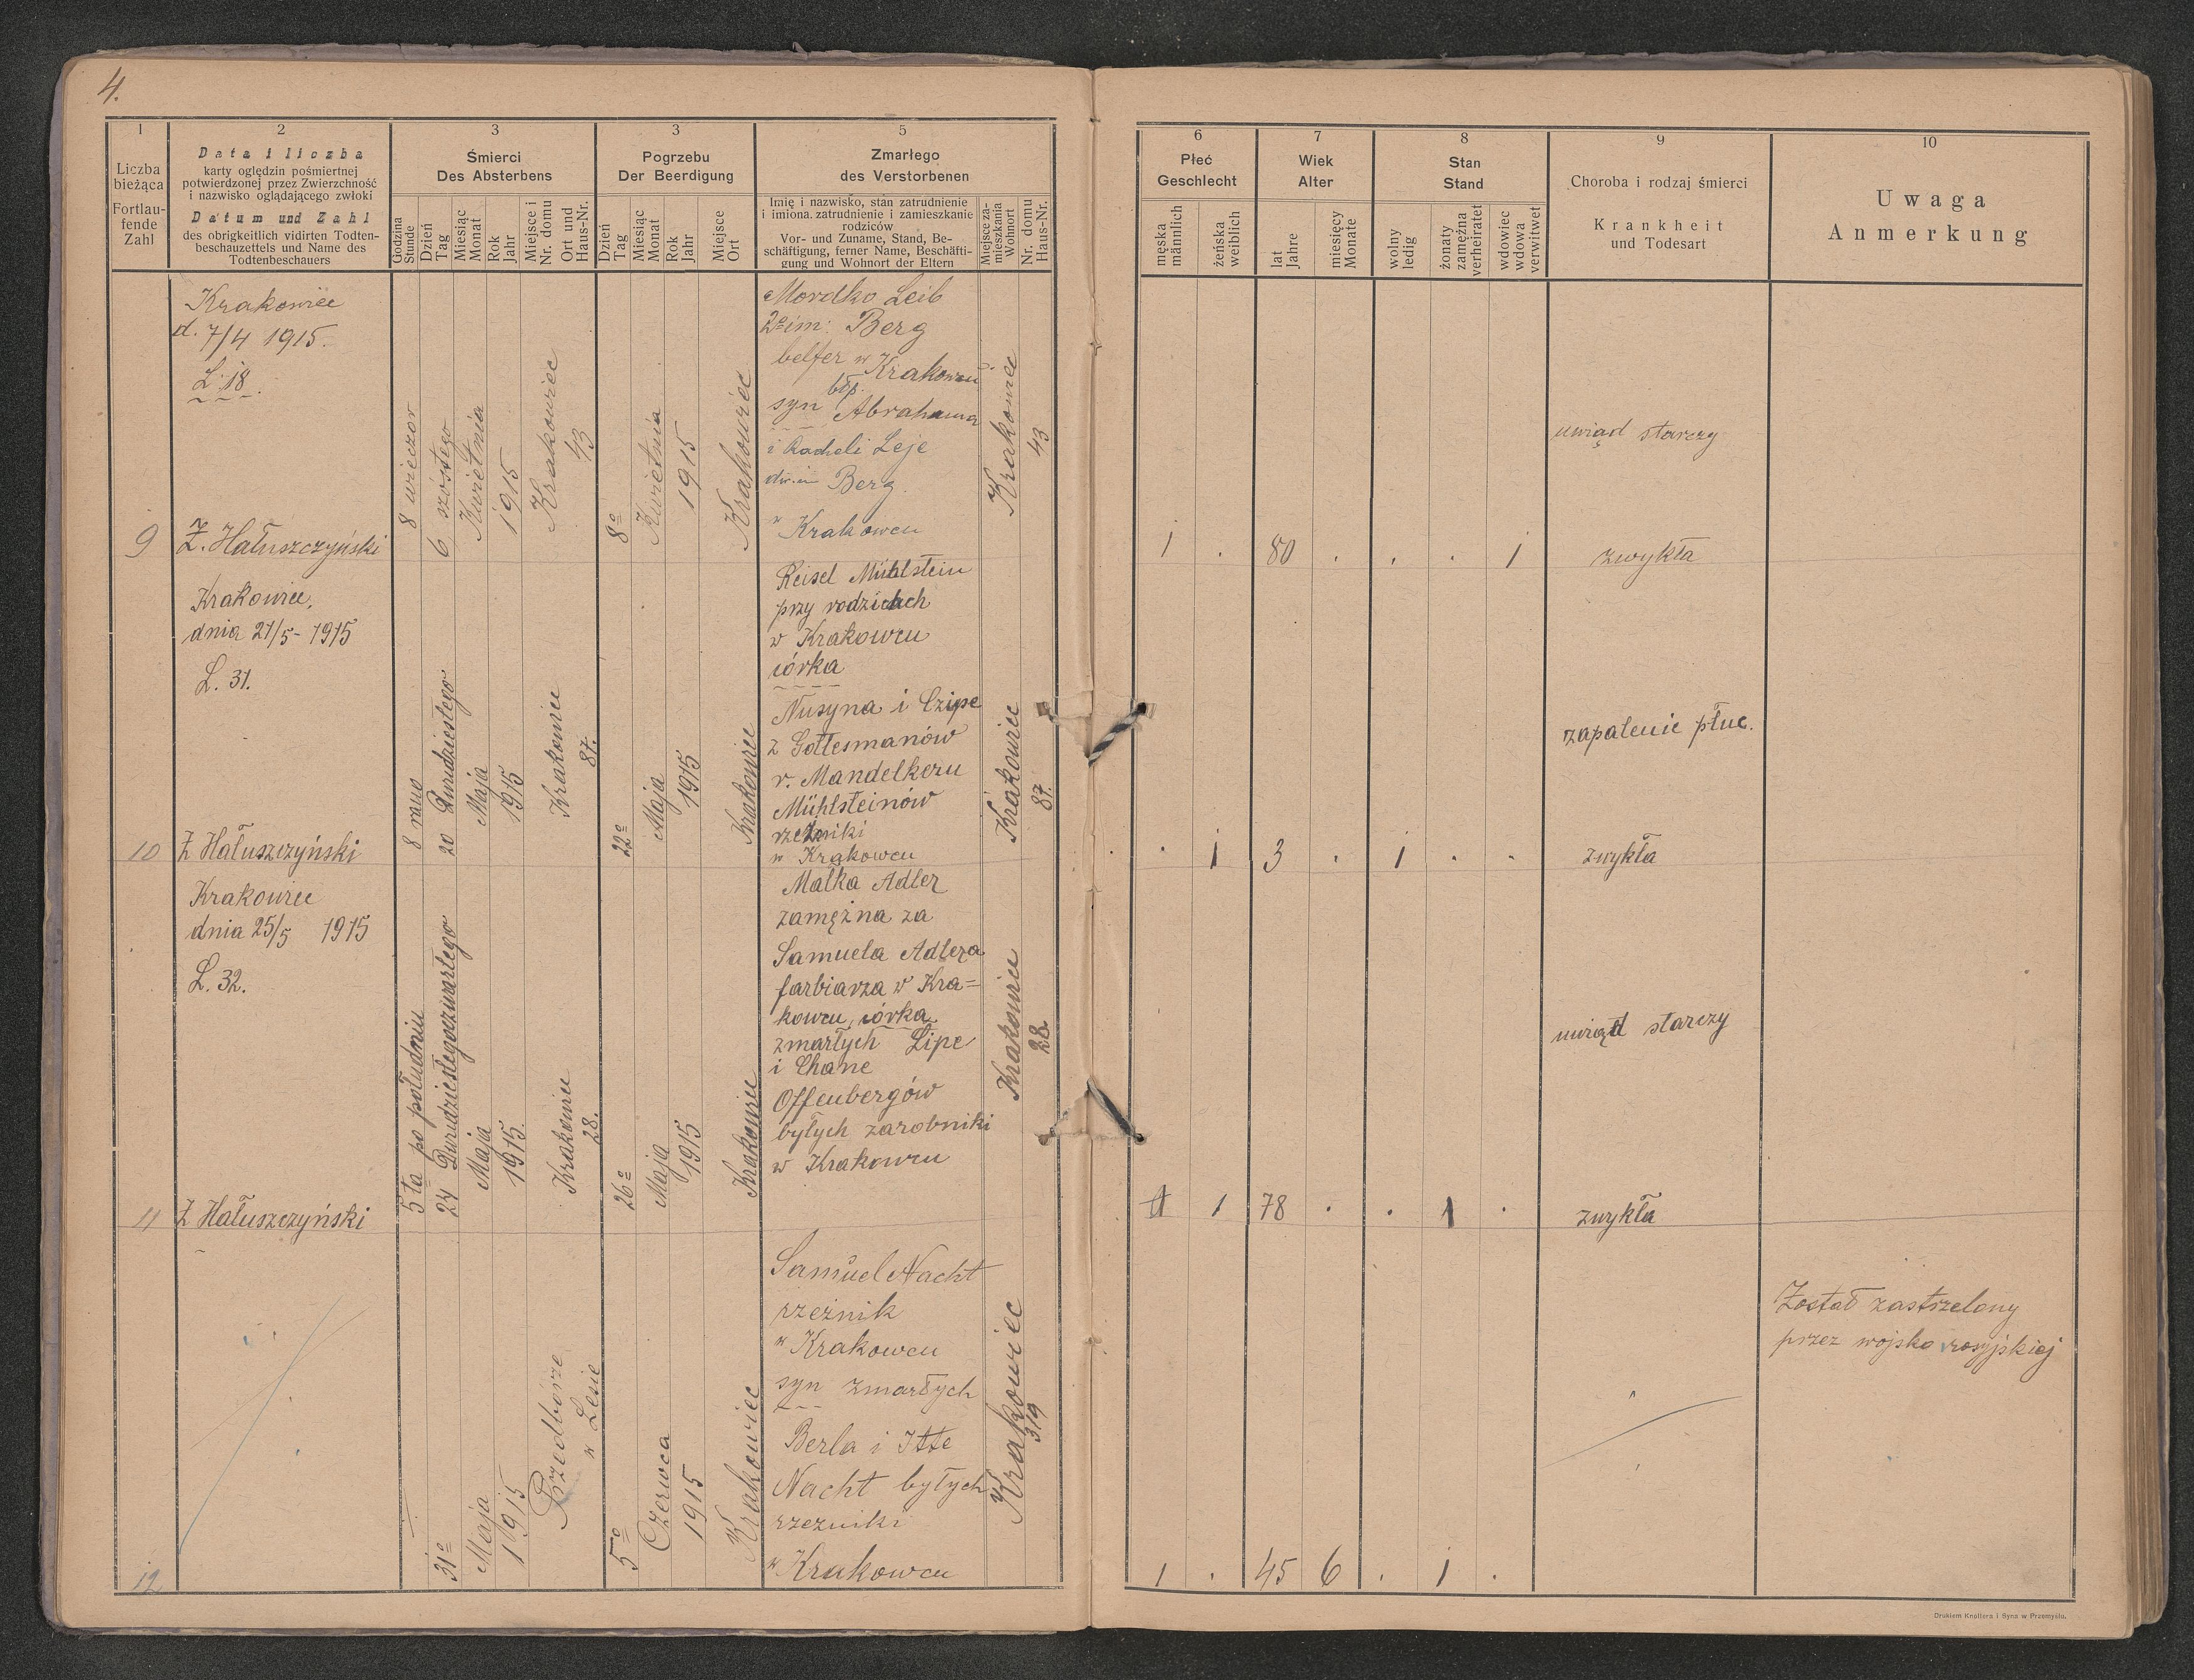 4.
1
Liczba
bieżąca
Fortlau-
fende
Zahl
2
Data i liczba
karty oględzin pośmiertnej
potwierdzonej przez Zwierzchność
i nazwisko oglądającego zwłoki
Datum und Zahl
des obrigkeitlich vidirten Todten-
beschauzettels und Name des
Todtenbeschauers
3
Śmierci
Des Absterbens
Godzina
Stunde
Dzień
Tag
Miesiąc
Monat
Rok
Jahr
Miejsce i
Nr. domu
Ort und
Haus-Nr.
3
Pogrzebu
Der Beerdigung
Dzień
Tag
Miesiąc
Monat
Rok
Jahr
Miejsce
Ort
5
Zmarłego
des Verstorbenen
Imię i nazwisko, stan zatrudnienie
i imiona, zatrudnienie i zamieszkanie
rodziców
Vor- und Zuname, Stand, Be-
schäftigung, ferner Name, Beschäfti-
gung und Wohnort der Eltern
Miejsce za-
mieszkania
Wohnort
Nr. domu
Haus-Nr.
6
Płeć
Geschlecht
męska
männlich
żeńska
weiblich
7
Wiek
Alter
lat
Jahre
miesięcy
Monate
8
Stan
Stand
wolny
ledig
żonaty
zamężna
verheiratet
wdowiec
wdowa
verwitwet
9
Choroba i rodzaj śmierci
Krankheit
und Todesart
10
Uwaga
Anmerkung
9
Krakowiec
d. 7/4 1915.
L. 18.
Ż. Hałuszczyński
8 wieczór
6 szóstego
Kwietnia
1915
Krakowiec
43
8o
Kwietnia
1915
Krakowiec
Mordko Leib
2o im: Berg
belfer w Krakowcu
błp.
syn Abrahama
i Racheli Leje
Berg
w Krakowcu
Krakowiec
43
1 . 80 . . . 1
uwiąd starczy
zwykła
10
Krakowiec,
dnia 21/5 - 1915
L. 31.
Ż Hałuszczyński
8 rano
20 Dwudziestego
Maja
1915
Krakowiec
87.
22o
Maja
1915
Krakowiec
Reisel Mühlstein
przy rodzicach
w Krakowcu
córka
Nusyna i Czipe
z Gottesmanów
v. Mandelkern
Mühlsteinów
rzeźniki
w Krakowcu
Krakowiec
87.
. 1 3 . 1 . .
zapalenie płuc.
zwykła
11
Krakowiec
dnia 25/5 1915
L. 32.
Ż Hałuszczyński
5ta po południu
24 Dwudziestegoczwartego
Maja
1915.
Krakowiec
28.
26o
Maja
1915
Krakowiec
Malka Adler
zamężna za
Samuela Adlera
farbiarza w Kra=
kowcu, córka
zmarłych Lipe
i Chane
Offenbergów
byłych zarobniki
w Krakowcu
Krakowiec
28.
1 1 78 . . 1 .
uwiąd starczy
zwykła
12
31o
Maja
1915
Przedbórze
w Lesie
5o
Czerwca
1915
Krakowiec
Samuel Nacht
rzeźnik
w Krakowcu
syn zmarłych
Berla i Itte
Nacht byłych
rzeźniki
w Krakowcu
Krakowiec
319
1 . 45 6 . 1 .
Został zastrzelony
przez wojsko rosyjskiej
Drukiem Knollera i Syna w Przemyślu.